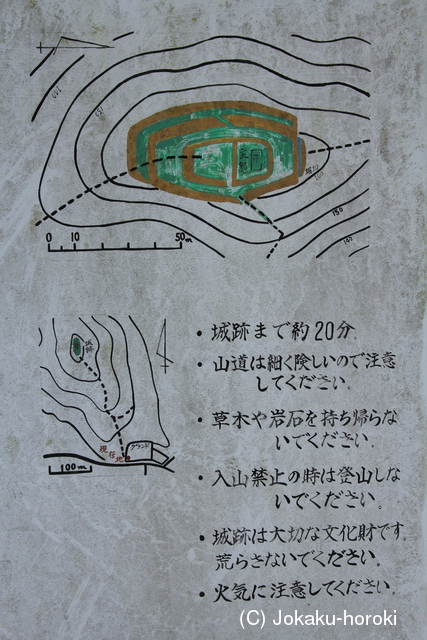 0 10 50m
・城跡まで約20分.
・山道は細く険しいので注意
してください.
・草木や岩石を持ち帰らな
いでください。
・入山禁止の時は登山しな
いでください。
・城跡は大切な文化財です.
荒らさないでください.
・火気に注意してください.
城跡
グランド
現在地
100m
(C) Jokaku-horoki